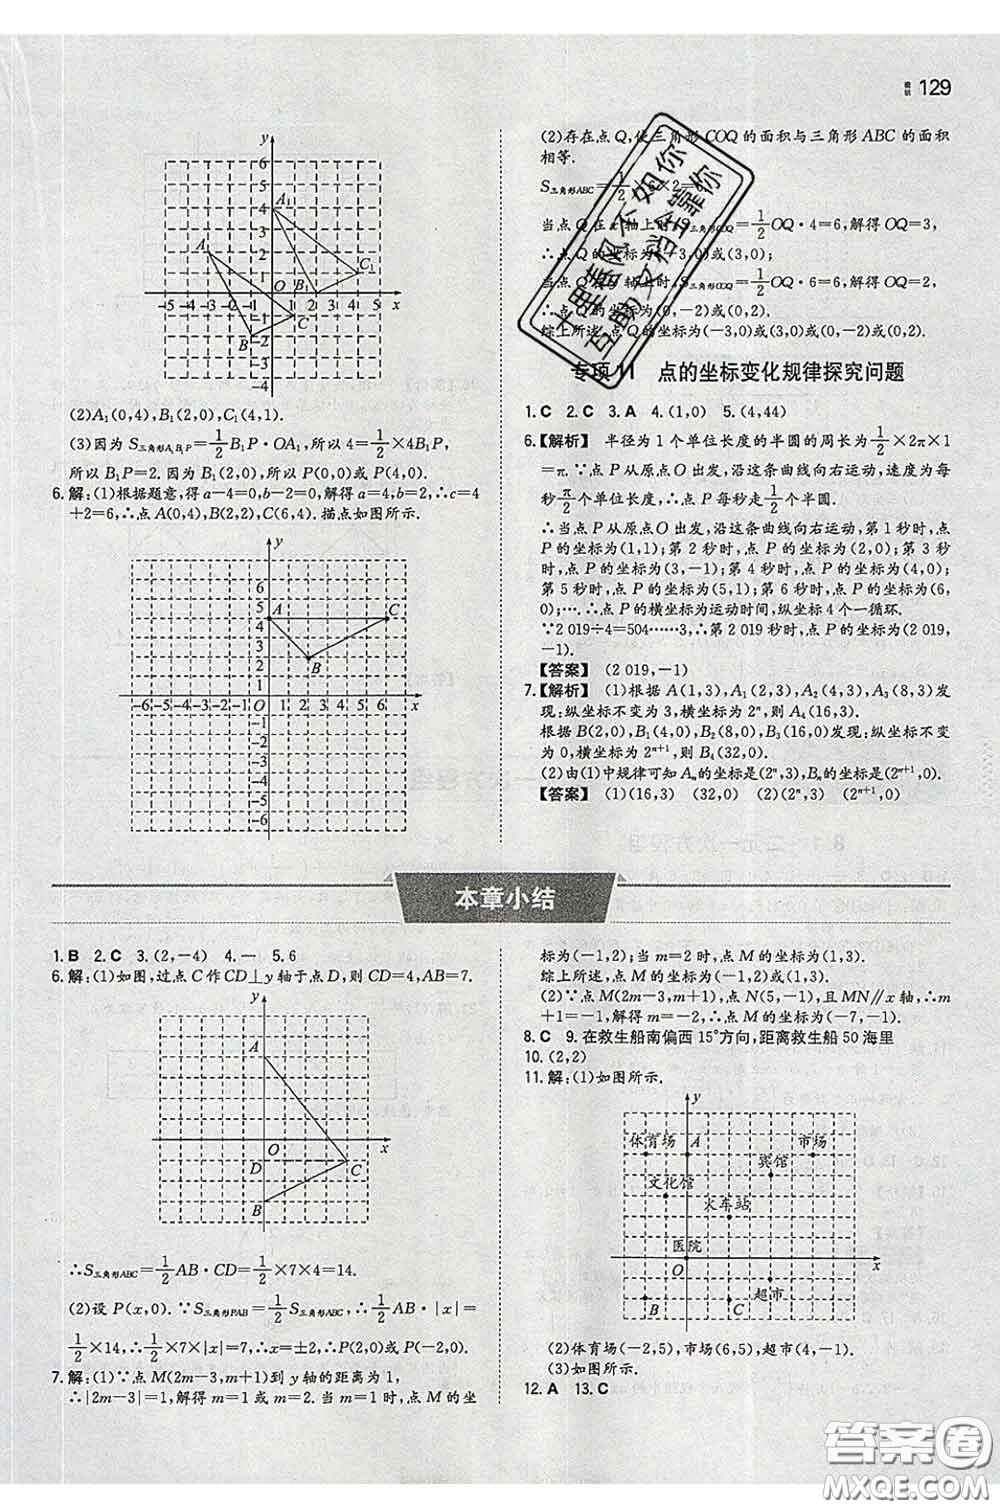 129
(2)A₁(0,4),B₁(2,0),C₁(4,1).
(3)因为 S三角形A₁B₁P=1/2B₁P·OA₁,所以4=1/2×4B₁P,
所以B₁P=2.因为B₁(2,0),所以P(0,0)或P(4,0).
6.解:(1)根据题意,得a-4=0,b-2=0,解得a=4,b=2,∴c=4
+2=6,∴点A(0,4),B(2,2),C(6,4).描点如图所示.
(2)存在点Q,使三角形COQ的面积与三角形ABC的面积
相等.
综上所述,点Q的坐标为(-3,0)或(3,0)或(0,-2)或(0,2).
专项11 点的坐标变化规律探究问题
1.C 2.C 3.A 4.(1,0) 5.(4,44)
6.【解析】 半径为1个单位长度的半圆的周长为1/2×2π×1
=π.∵点P从原点O出发,沿这条曲线向右运动,速度为每
秒π/2个单位长度,∴点P每秒走1/2个半圆.
∴当点P从原点O出发,沿这条曲线向右运动,第1秒时,点
P的坐标为(1,1);第2秒时,点P的坐标为(2,0);第3秒
时,点P的坐标为(3,-1);第4秒时,点P的坐标为(4,0);
第5秒时,点P的坐标为(5,1);第6秒时,点P的坐标为(6,
0);….∴点P的横坐标为运动时间,纵坐标4个一循环.
∵2 019÷4=504……3,∴第2 019秒时,点P的坐标为(2 019,
-1).
【答案】 (2 019,-1)
7.【解析】 (1)根据A(1,3),A₁(2,3),A₂(4,3),A₃(8,3)发
现:纵坐标不变为3,横坐标为2ⁿ,则A₄(16,3).
根据B(2,0),B₁(4,0),B₂(8,0),B₃(16,0)发现:纵坐标不变
为0,横坐标为2ⁿ⁺¹,则B₄(32,0).
(2)由(1)中规律可知Aₙ的坐标是(2ⁿ,3),Bₙ的坐标是(2ⁿ⁺¹,0).
【答案】 (1)(16,3) (32,0) (2)(2ⁿ,3) (2ⁿ⁺¹,0)
本章小结
1.B 2.C 3.(2,-4) 4.一 5.6
6.解:(1)如图,过点C作CD⊥y轴于点D,则CD=4,AB=7.
∴S三角形ABC=1/2AB·CD=1/2×7×4=14.
(2)设P(x,0).∵S三角形PAB=1/2S三角形ABC,∴1/2AB·|x|=
1/2×14,∴1/2×7×|x|=7,∴x=±2,∴P(2,0)或P(-2,0).
7.解:(1)∵点M(2m-3,m+1)到y轴的距离为1,
∴|2m-3|=1,解得m=1或m=2.当m=1时,点M的坐
标为(-1,2);当m=2时,点M的坐标为(1,3).
综上所述,点M的坐标为(-1,2)或(1,3).
(2)∵点M(2m-3,m+1),点N(5,-1),且MN∥x轴,∴m
+1=-1,解得m=-2,∴点M的坐标为(-7,-1).
8.C 9.在救生船南偏西15°方向,距离救生船50海里
10.(2,2)
11.解:(1)如图所示.
体育场 A 市场
宾馆
文化馆
火车站
医院
超市
B C
(2)体育场(-2,5),市场(6,5),超市(4,-1).
(3)如图所示.
12.A 13.C
十里春风不如你
互助文档全靠你
答案圈
MXQE.COM